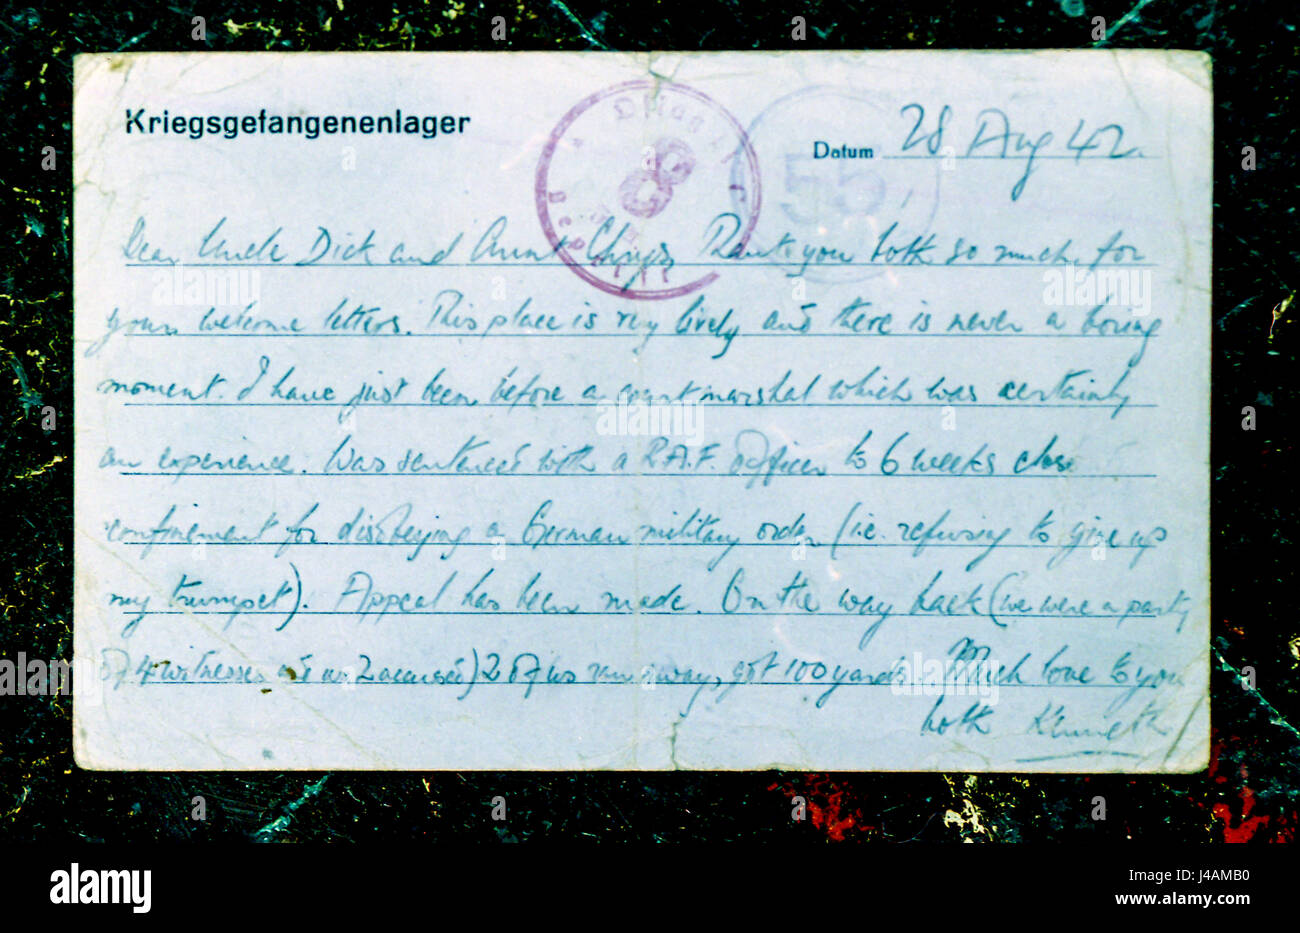 Kriegsgefangenenlager
Datum 28 Aug 42.
Dear Uncle Dick and Aunt Thank you both so much for
your welcome letters. This place is very lively and there is never a boring
moment. I have just been before a court marshal which was certainly
an experience. Was sentenced with a R.A.F. officer to 6 weeks close
confinement for disobeying a German military order (i.e. refusing to give up
my trumpet). Appeal has been made. On the way back (we were a party
of 4 witnesses and us 2 accused) 2 of us ran away, got 100 yards. Much love to you
both Kenneth
55
alamy
Image ID: J4AMB0
www.alamy.com